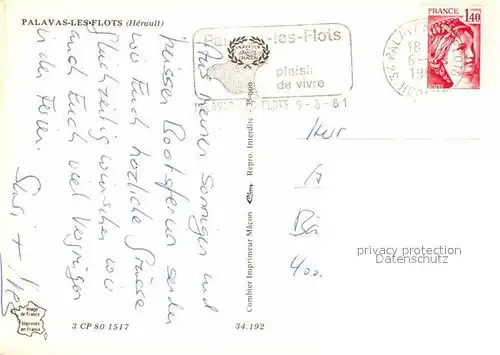 PALAVAS-LES-FLOTS (Hérault)
Palavas-les-Flots
plaisir
de vivre
PALAVAS LES FLOTS 6-8-81
34 PALAVAS
18
6-
19
FRANCE
1,40
Aus meinen sonnigen und
heissen Bootsferien senden
wir Euch herzliche Grüsse
Gleichzeitig wünschen wir
auch Euch viel Vergnügen
in den Ferien.
Susi +
Herr
400
privacy protection
Datenschutz
Combier Imprimeur Mâcon
Repro. Interdite
Image
de France
Imprimée
en France
3 CP 80 1517
34.192